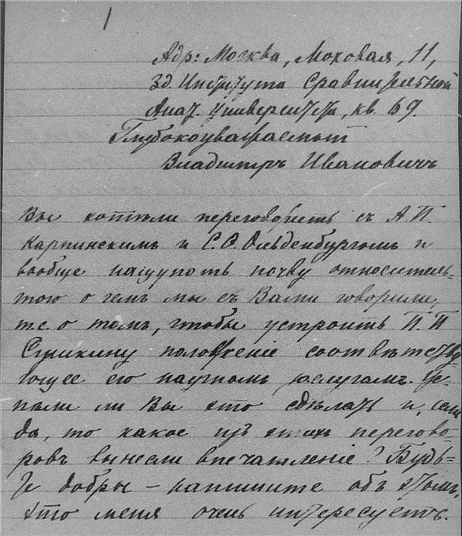 1
Адр: Москва, Моховая, 11,
зд. Института Сравнительной
Анат. Университета, кв. 69.
Глубокоуважаемый
Владимиръ Ивановичъ
Вы хотѣли переговорить съ А.П.
Карпинскимъ и С.Ѳ. Ольденбургомъ и
вообще нащупать почву относитель-
но о чемъ мы съ Вами говорили,
т.е. о томъ, чтобы устроить П.П.
Сушкину положеніе соотвѣтству
ющее его научнымъ заслугамъ. Ус-
пѣли ли Вы это сдѣлать и, если
да, то какое изъ этихъ перегово-
ровъ вынесли впечатлѣніе? Будь-
те добры – напишите объ этомъ,
это меня очень интересуетъ.